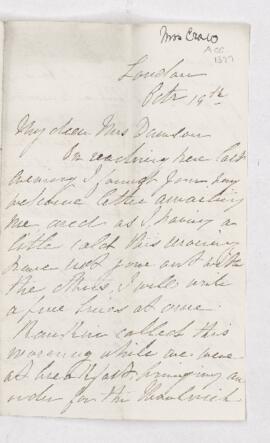 Mrs Craw
London
Octr 19th
My dear Mrs Dawson
On reaching here last
evening I found your very
welcome letter awaiting
me and as I having a
little cold this morning
have not gone out with
the others, I will write
a few lines at once.
called this
morning while we were
at breakfast bringing an
order for the Woolwich